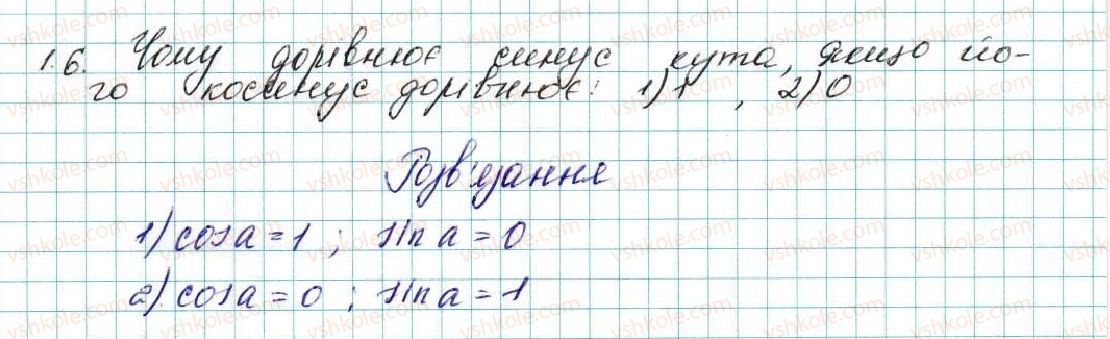 1.6. Чому дорівнює синус кута, якщо йо-
го косинус дорівнює: 1) 1 , 2) 0
Розв'язання
1) cos a = 1 ; sin a = 0
2) cos a = 0 ; sin a = 1